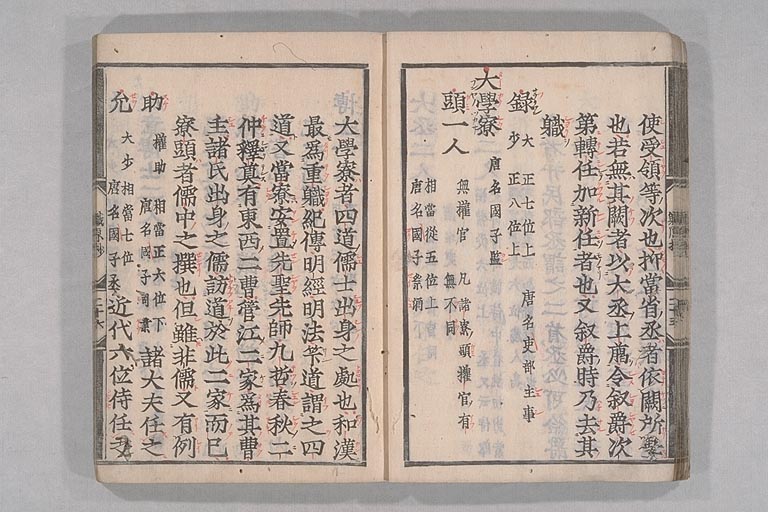 使受領等次也抑當省丞者依闕所望
也若無其闕者以大丞上﨟令叙爵次
第轉任加新任者也又叙爵時乃去其
職
録 大 正七位上 唐名吏部主事
少 正八位上
大學寮 唐名國子監
頭一人 無權官 凡諸寮頭權官有無不同
相當從五位上
唐名國子祭酒
大學寮者四道儒士出身之處也和漢
最爲重職紀傳明經明法筭道謂之四
道又當寮安置先聖先師九哲春秋二
仲釋奠有東西二曹菅江二家爲其曹
主諸氏出身之儒訪道於此二家而已
寮頭者儒中之撰也但雖非儒又有例
助 權助 相當正六位下 諸大夫任之
唐名國子司業
允 大少相當七位 近代六位侍任之
唐名國子丞
職原抄 二十六